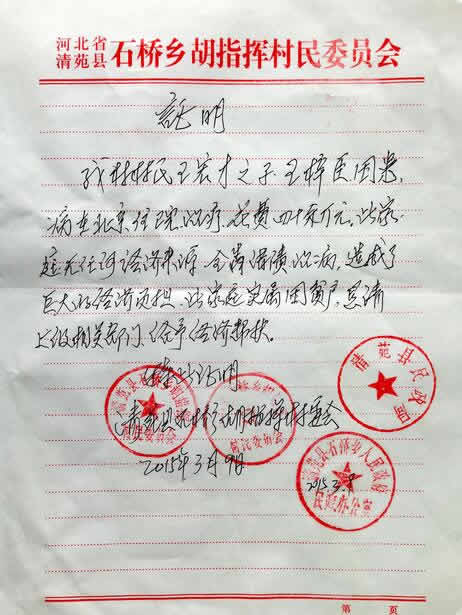 河北省
清苑县 石桥乡胡指挥村民委员会
证明
我村村民王宏才之子王梓臣因患
病在北京住院治疗,花费四十余万元,此家
庭无任何经济来源,全靠借债治病,造成了
巨大的经济负担,此家庭实属困贫户,恳请
上级相关部门,给予经济帮扶。
特此证明
清苑县石桥乡胡指挥村委会
2015年3月9日
清苑县民政局
村民委员会
清苑县石桥乡人民政府
民政办公室
2015.3.9
第 页